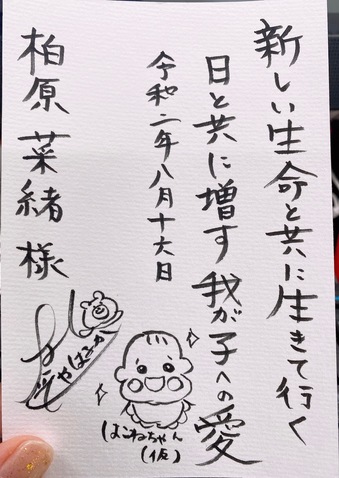 新しい生命と共に生きて行く
日と共に増す我が子への愛
令和二年八月十六日
柏原菜緒様
はこねちゃん
(仮)